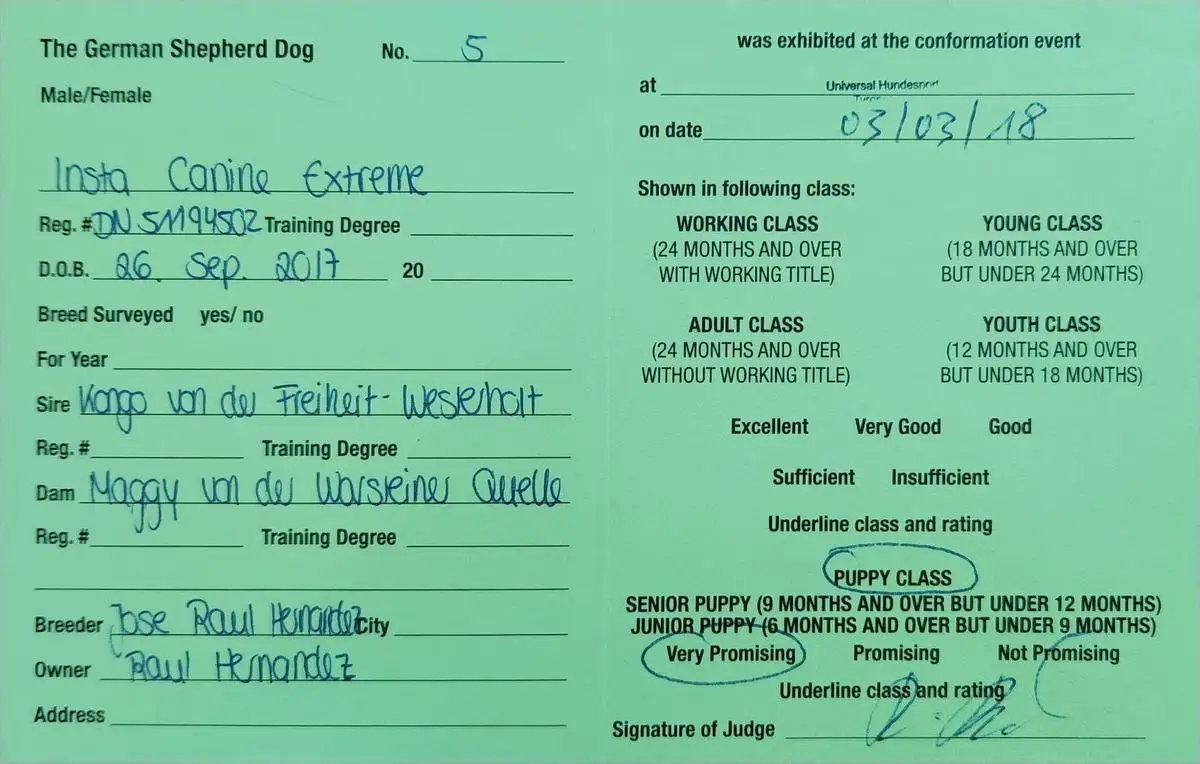 The German Shepherd Dog No. 5
Male/Female
Insta Canine Extreme
Reg. # DN 51194502 Training Degree
D.O.B. 26. Sep. 2017 20
Breed Surveyed yes/ no
For Year
Sire Kongo von der Freiheit-Westerholt
Reg. # Training Degree
Dam Maggy von der Warsteiner Quelle
Reg. # Training Degree
Breeder Jose Raul Hernandez City
Owner Raul Hernandez
Address
was exhibited at the conformation event
at Universal Hundesport
on date 03/03/18
Shown in following class:
WORKING CLASS YOUNG CLASS
(24 MONTHS AND OVER (18 MONTHS AND OVER
WITH WORKING TITLE) BUT UNDER 24 MONTHS)
ADULT CLASS YOUTH CLASS
(24 MONTHS AND OVER (12 MONTHS AND OVER
WITHOUT WORKING TITLE) BUT UNDER 18 MONTHS)
Excellent Very Good Good
Sufficient Insufficient
Underline class and rating
PUPPY CLASS
SENIOR PUPPY (9 MONTHS AND OVER BUT UNDER 12 MONTHS)
JUNIOR PUPPY (6 MONTHS AND OVER BUT UNDER 9 MONTHS)
Very Promising Promising Not Promising
Underline class and rating
Signature of Judge